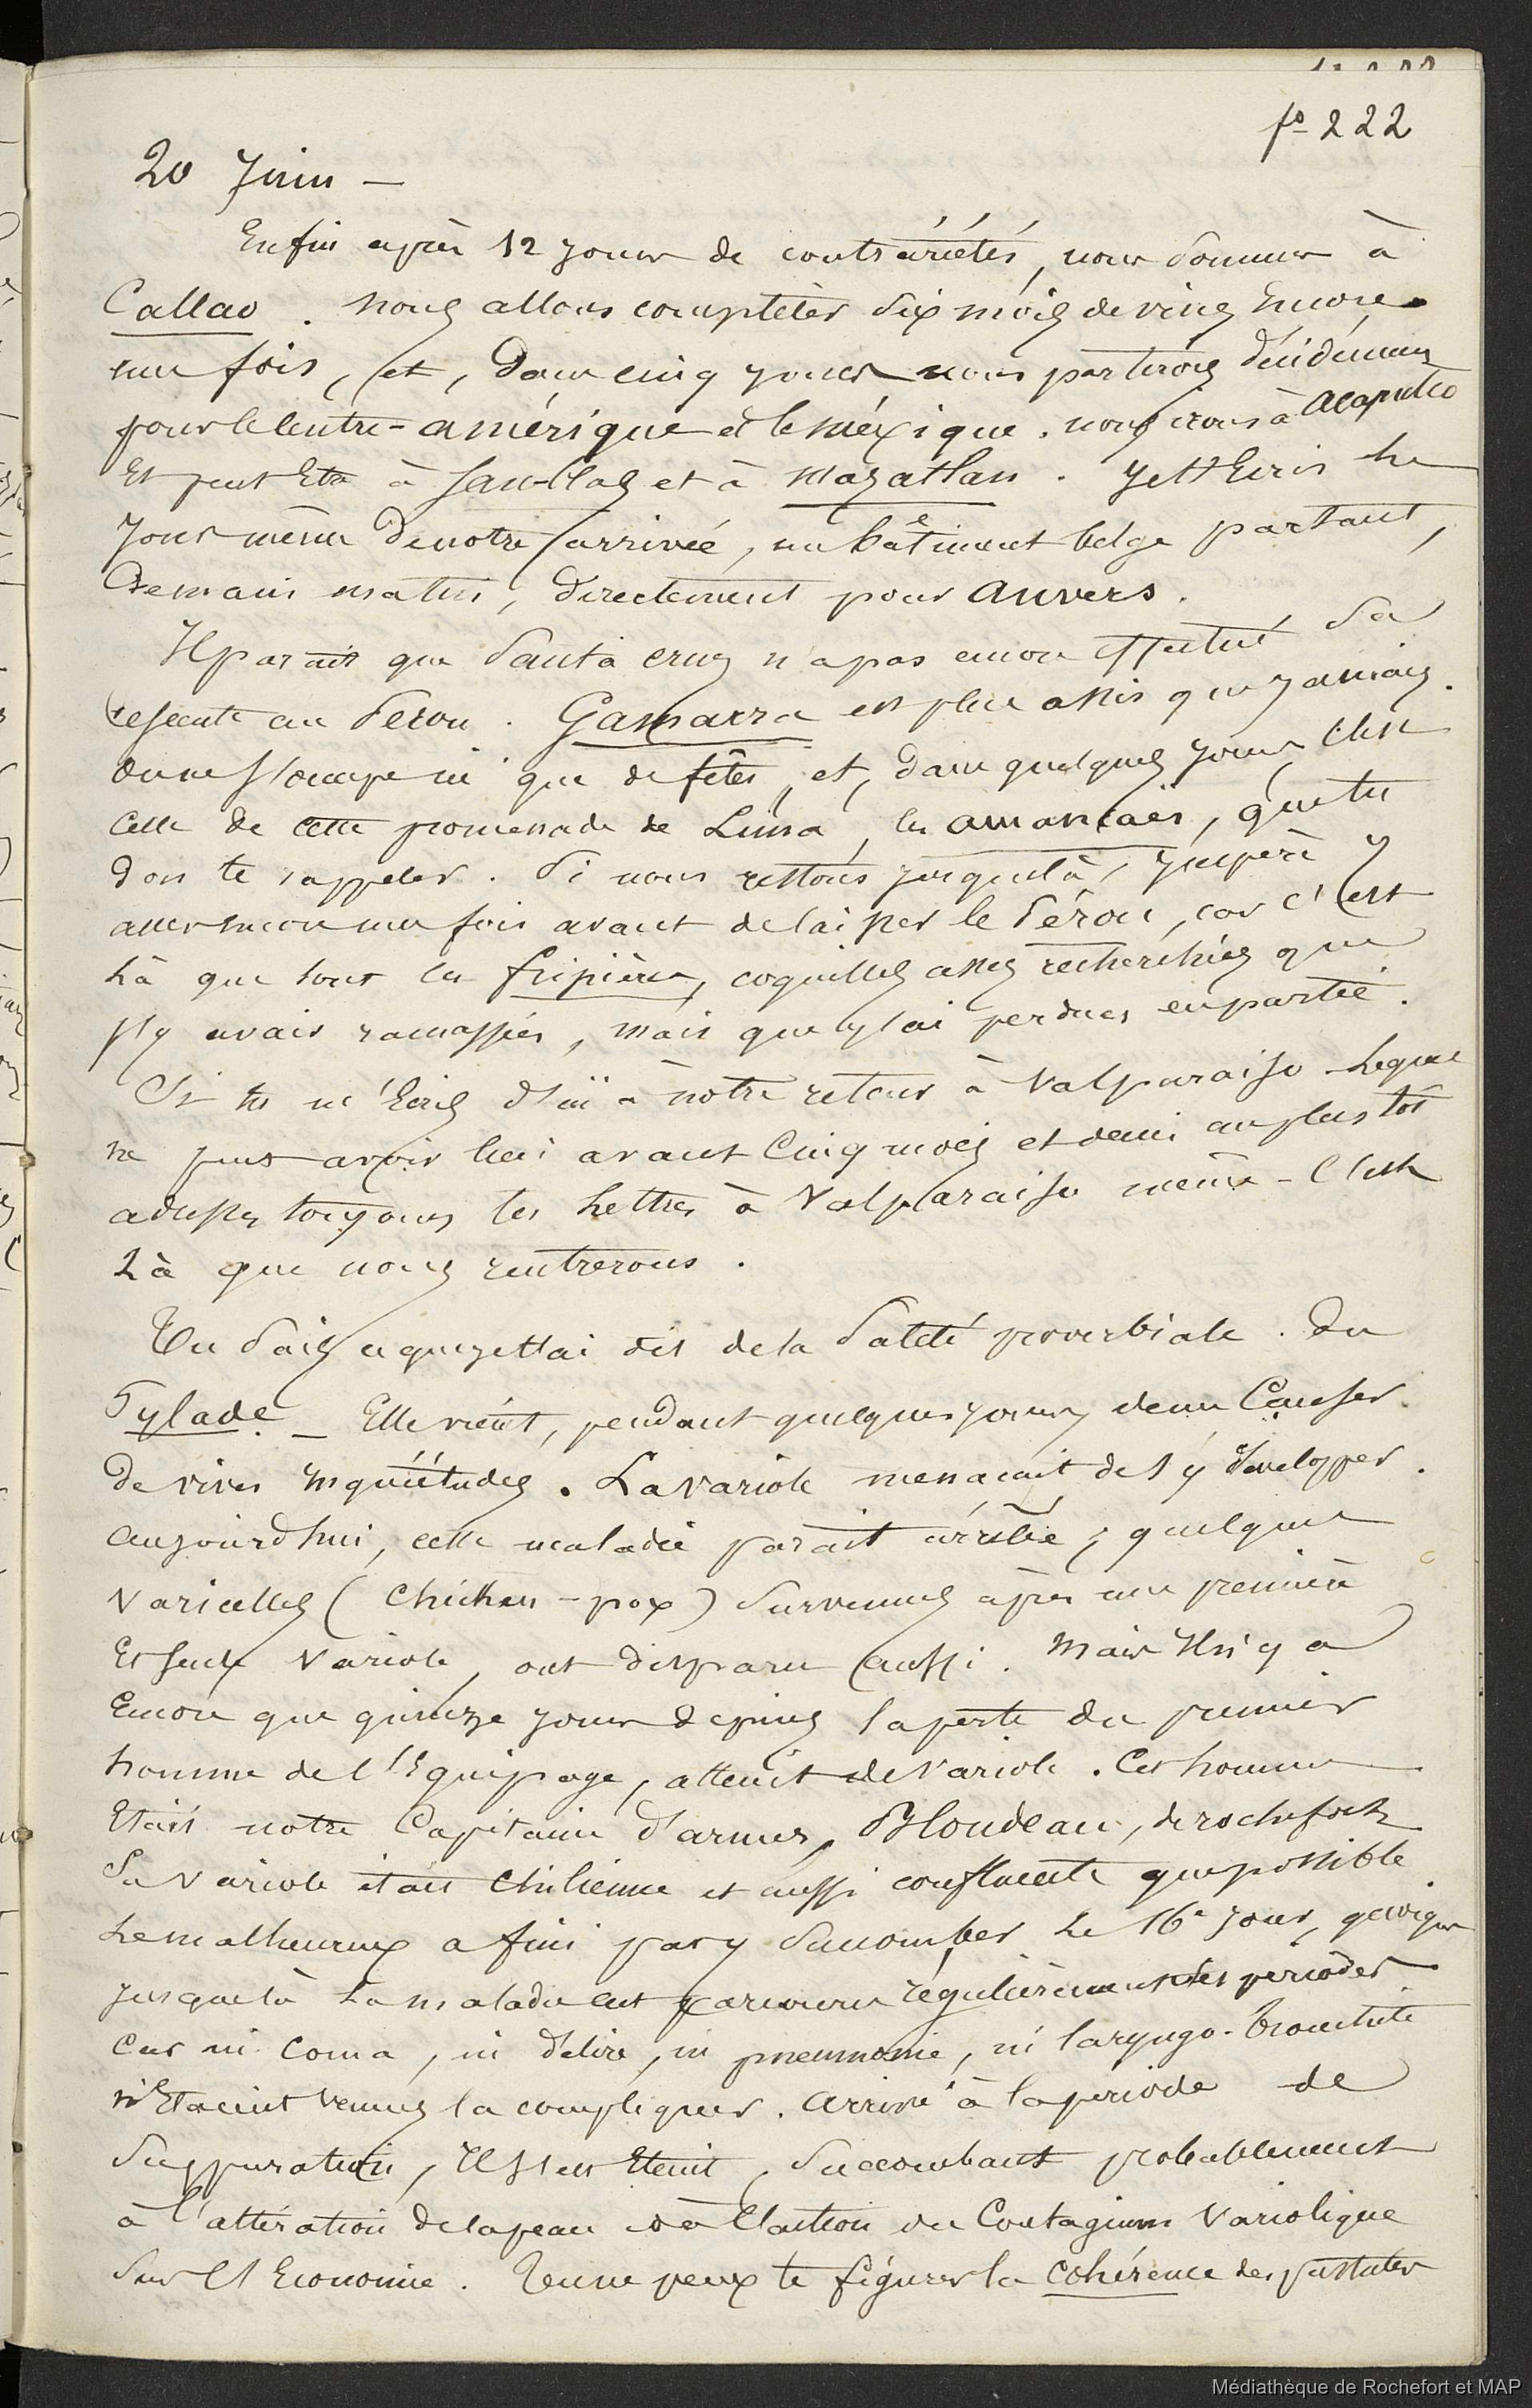 fo 222
20 Juin —
Enfin après 12 jours de contrariétés, nous sommes à
Callao. nous allons compléter six mois de vivres Encore
une fois, et, dans cinq jours nous partirons décidément
pour le Centre-amérique et le méxique. nous irons à Acapulco
Et peut Etre à San-blas et à Mazatlan. Je t'Ecris le
Jour même de notre arrivée, un bâtiment belge partant,
Demain matin, directement pour Anvers.
Il parait que Santa cruz n'a pas encore effectué sa
descente au Pérou. Gamarra est plus assis que jamais.
On ne s'occupe ici que de fêtes, et, dans quelques jours, C'est
Celle de cette promenade de Lima, les amancaës, que tu
dois te rappeler. Si nous restons jusques là, J'espère y
aller encore une fois avant de laisser le Pérou, car c'est
là que sont les fripières, coquilles assez recherchées que
j'y avais ramassées, mais que j'ai perdues en partie.
Si tu m'Ecris d'ici à notre retour à Valparaiso - Lequel
ne peut avoir lieu avant Cinq mois et demi au plus tôt
adresse toujours tes Lettres à Valparaiso même - C'est
Là que nous rentrerons.
Tu Sais ce que je t'ai dit de la Santé proverbiale. du
Pylade - Elle vient, pendant quelques jours, de nous Causer
de vives Inquiétudes. La variole menaçait de s'y développer.
aujourd'hui, cette maladie parait arrêtée; quelques
Varicelles (Chicken-pox) Survenues après une première
Et Seule Variole, ont disparu aussi. Mais Il n'y a
Encore que quinze jours depuis la perte du premier
homme de l'Equipage, atteint de Variole. Cet homme
Etait notre Capitaine d'armes, Blondeau, de rochefort
Sa Variole était Chilienne et aussi confluente que possible
Le malheureux a fini par y Succomber Le 16e jour, quoique
jusque là La maladie eut parcouru régulièrement ses périodes
Car ni Coma, ni délire, ni pneumonie, ni laryngo-bronchite
n'Etaient venues la compliquer. Arrivé à la période de
Suppuration, Il s'est Eteint, Succombant probablement
à l'altération de la peau et à l'action du Contagium Variolique
Sur l'Economie. Tu ne peux te figurer la cohérence des pustules
Médiathèque de Rochefort et MAP